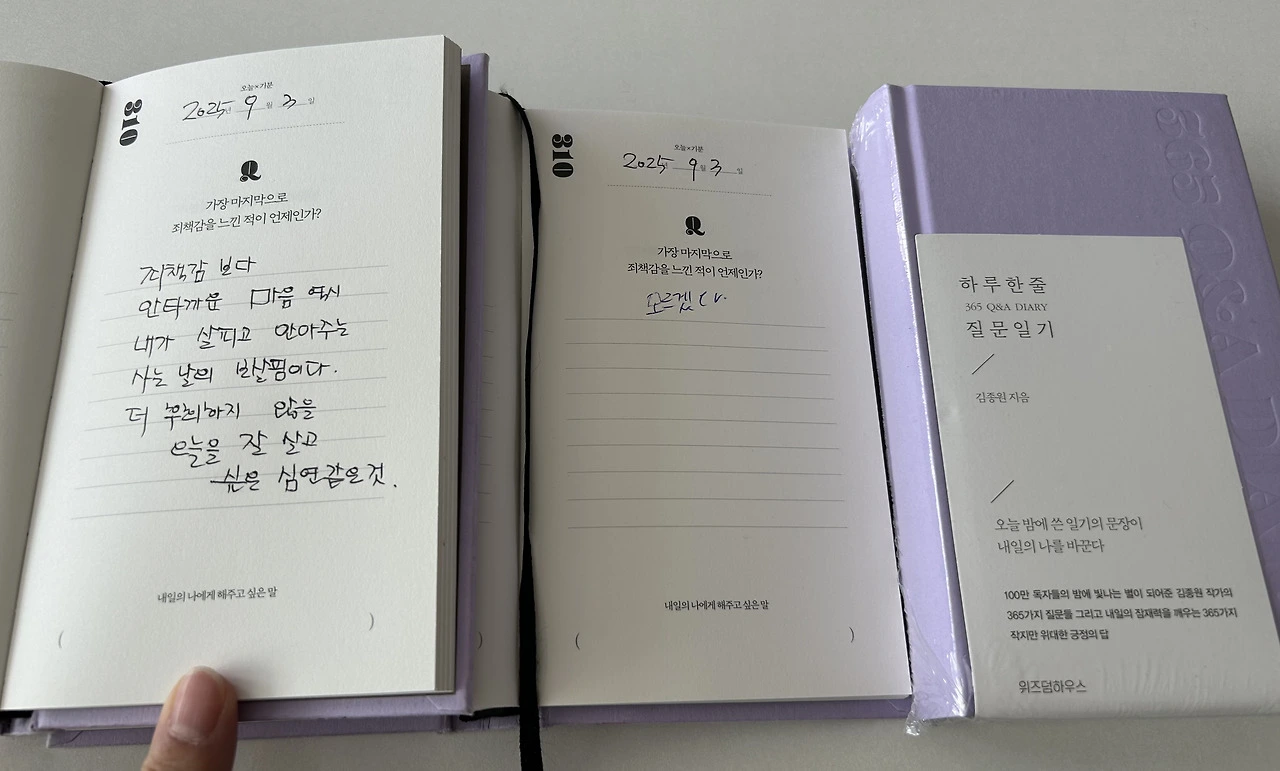 310
오늘×기분
2025년 9월 3일
Q
가장 마지막으로
죄책감을 느낀 적이 언제인가?
죄책감 보다
안타까운 마음 역시
내가 살피고 안아주는
사는 날의 보살핌이다.
더 후회하지 않을
오늘을 잘 살고
싶은 심연같은 것.
내일의 나에게 해주고 싶은 말
( )
310
오늘×기분
2025년 9월 3일
Q
가장 마지막으로
죄책감을 느낀 적이 언제인가?
모르겠다.
내일의 나에게 해주고 싶은 말
( )
365 Q&A DIA
하루 한 줄
365 Q&A DIARY
질문 일기
김종원 지음
오늘 밤에 쓴 일기의 문장이
내일의 나를 바꾼다
100만 독자들의 밤에 빛나는 별이 되어준 김종원 작가의
365가지 질문들 그리고 내일의 잠재력을 깨우는 365가지
작지만 위대한 긍정의 답
위즈덤하우스